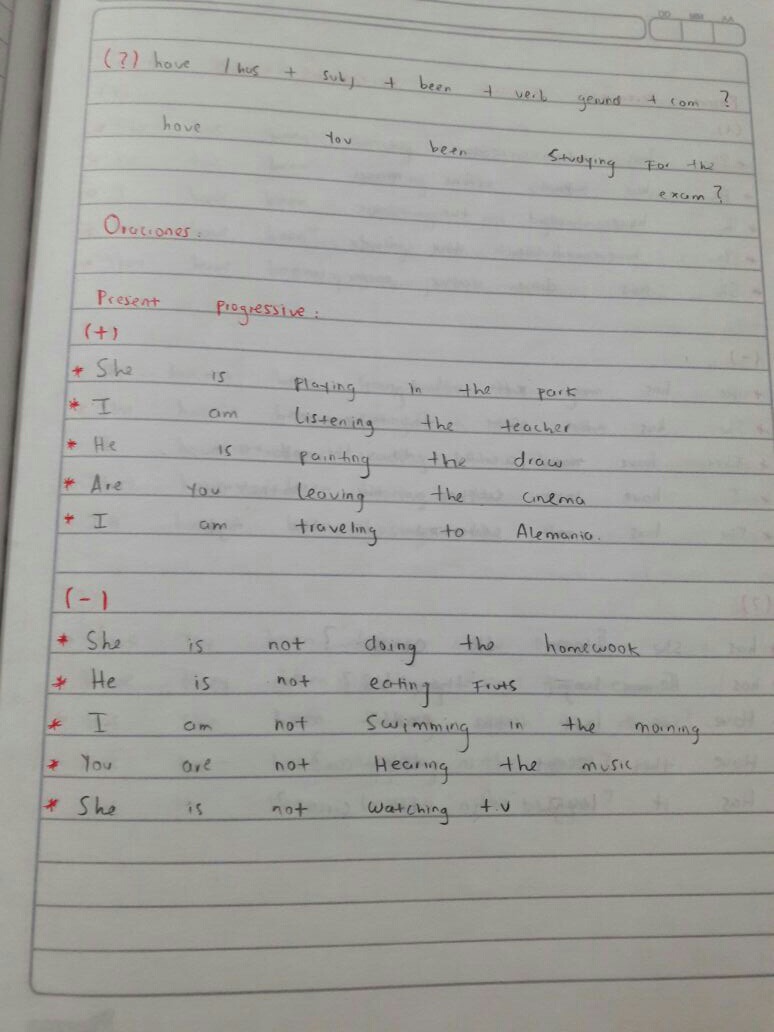 DD MM AA
(?) have / has + subj + been + verb gerund + com ?
have You been studying For the
exam?
Oraciones:
Present progressive:
(+)
* She is playing in the park
* I am listening the teacher
* He is painting the draw
* Are you leaving the cinema
* I am traveling to Alemania.
(-)
* She is not doing the homewook
* He is not eating Fruts
* I am not swimming in the morning
* You are not Hearing the music
* She is not watching t.v